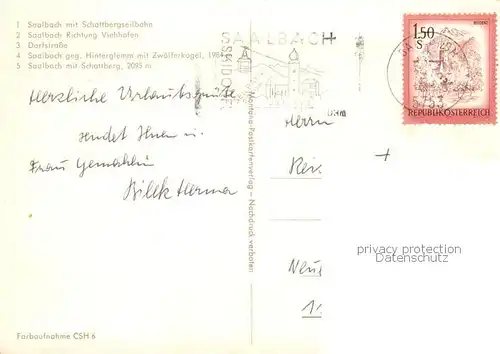 1 Saalbach mit Schattbergseilbahn
2 Saalbach Richtung Viehhofen
3 Dorfstraße
4 Saalbach geg. Hinterglemm mit Zwölferkogel, 1984
5 Saalbach mit Schattberg, 2095 m
SAALBACH
SKIDORF
1.50
S
5753
REPUBLIK ÖSTERREICH
Herzliche Urlaubsgrüße
sendet Ihnen u.
Frau Gemahlin
Herma
Herrn
Monopia-Postkartenverlag - Nachdruck verboten
privacy protection
Datenschutz
Farbaufnahme CSH 6